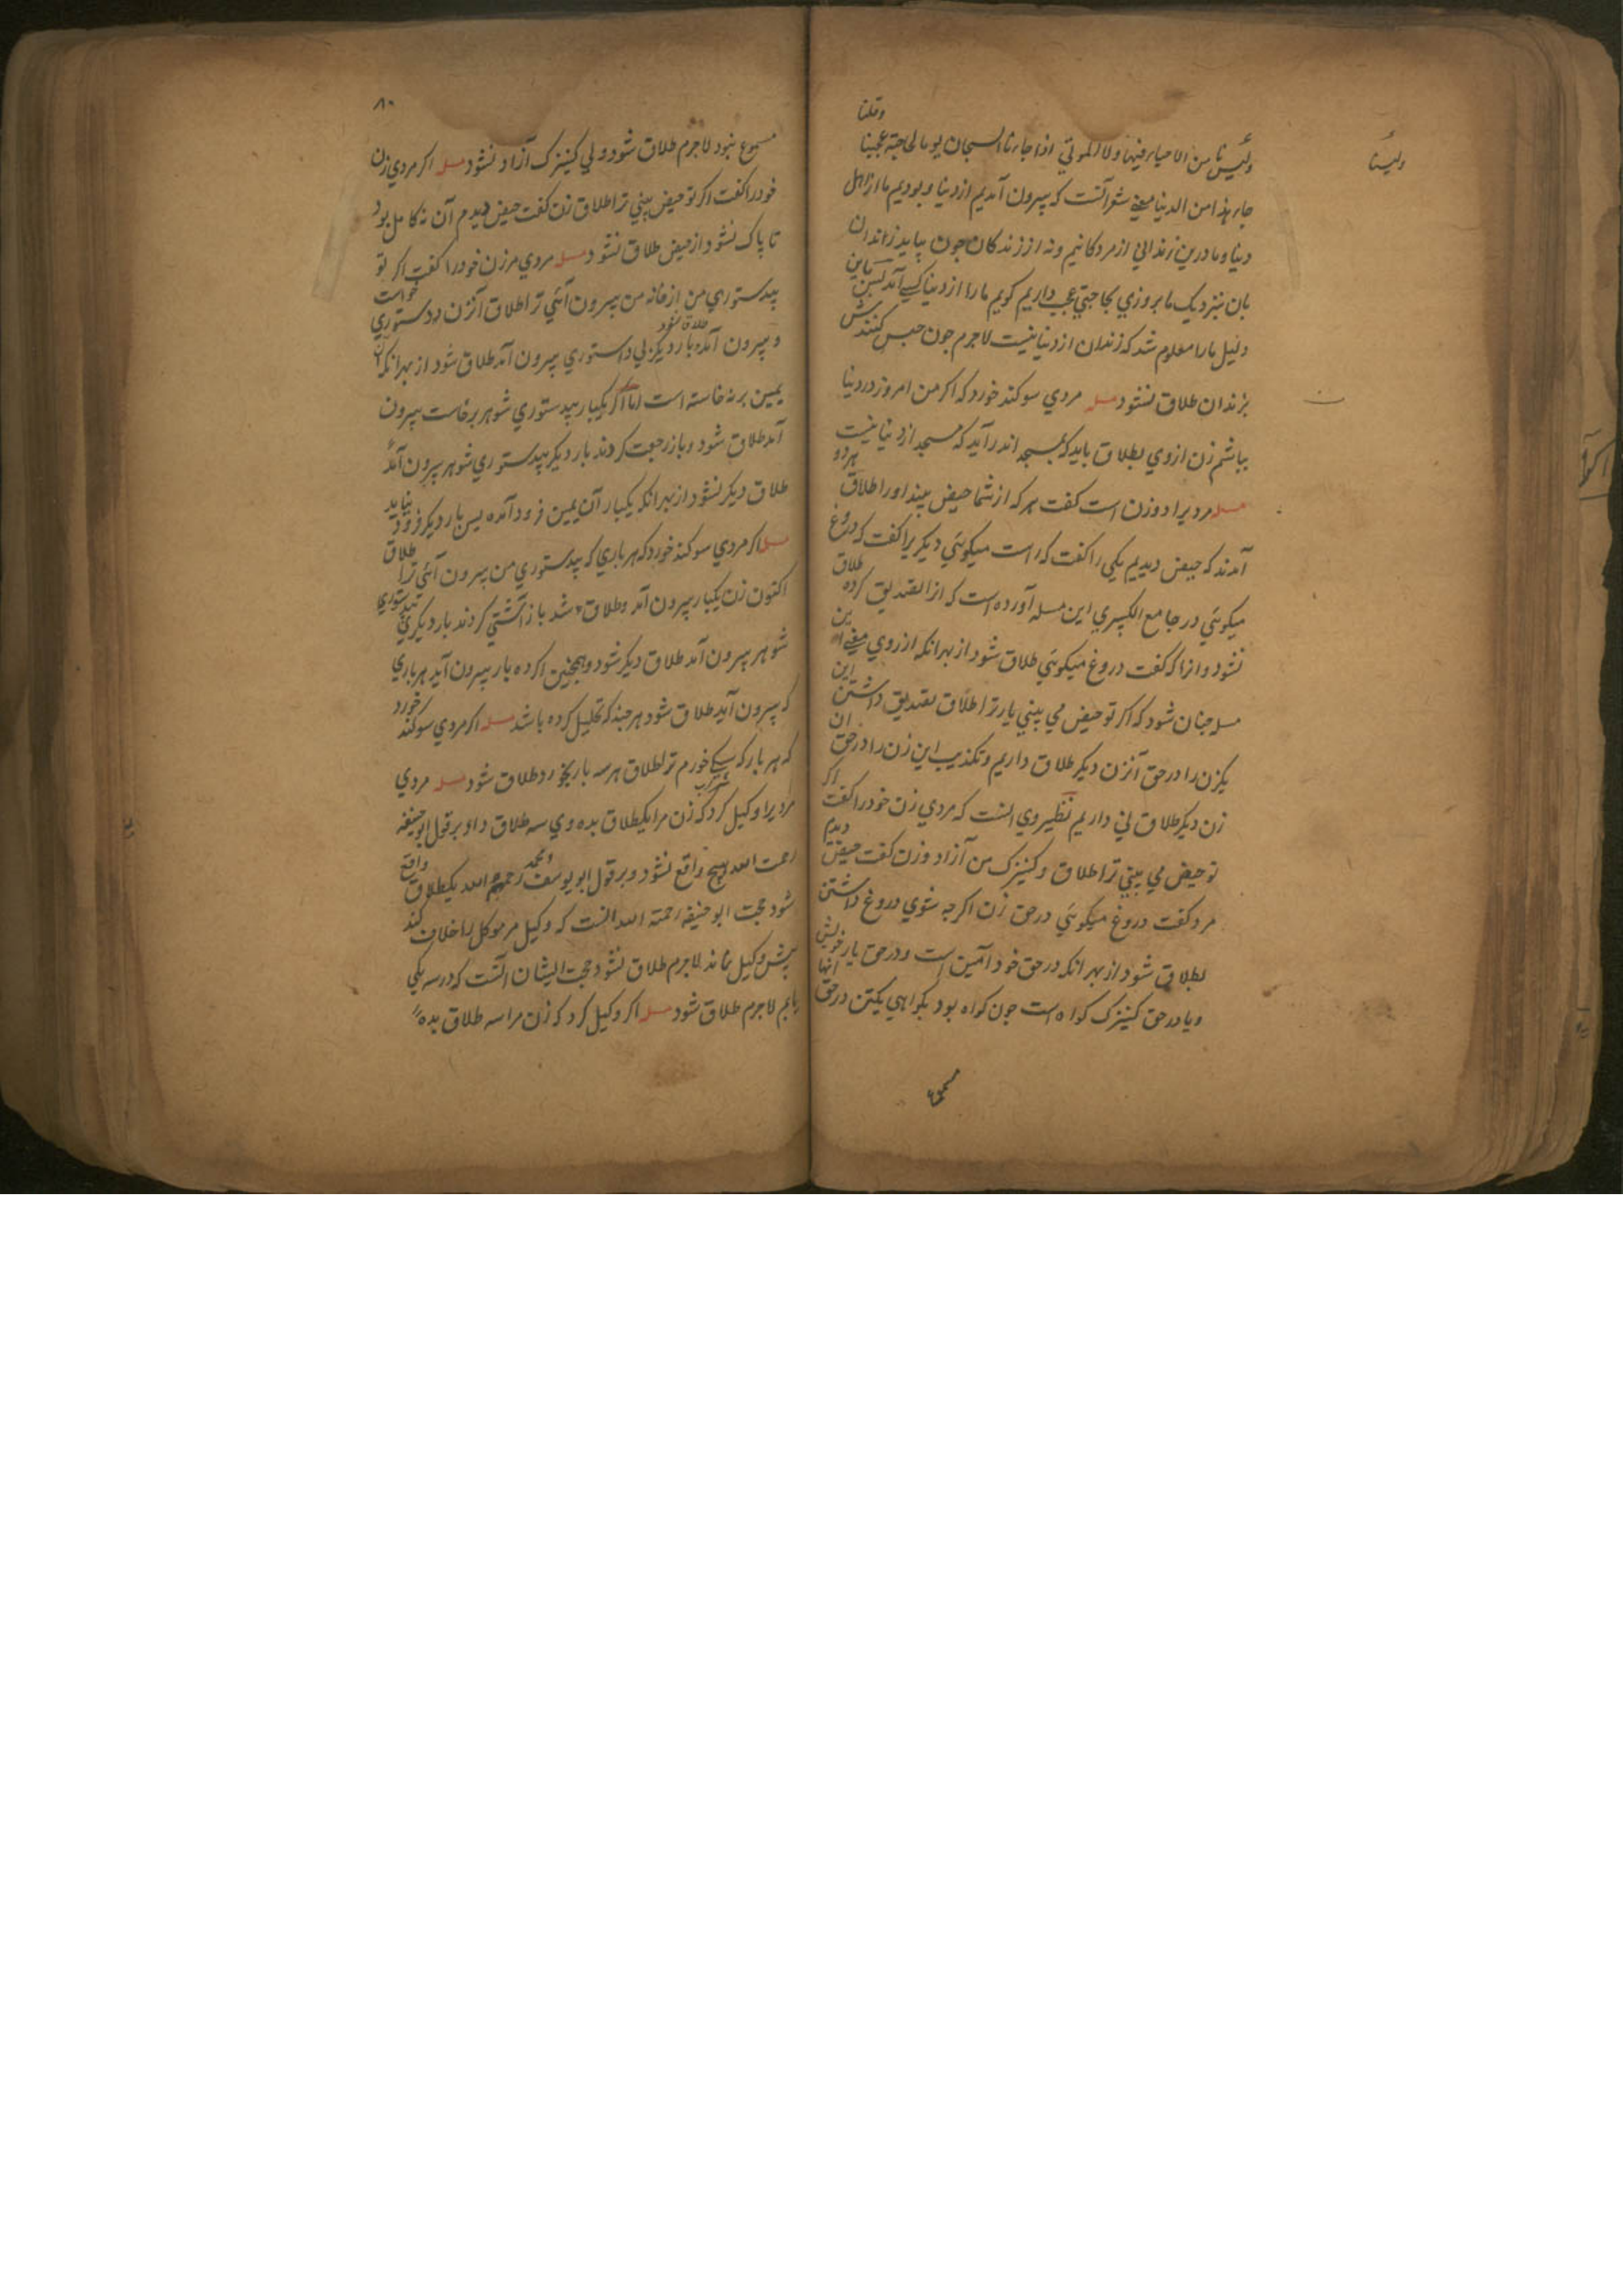 وقلنا
ولیس نا من الاحیاء فیها ولا الموتی اذا جاءنا السجان یوما لحاجة عجبنا
ولیسنا
جاء هذا من الدنیا معنی شعر آنست که بیرون آمدیم از دنیا و بودیم ما از اهل
دنیا و ما درین زندانی از مردکانیم و نه از زندکان جون بیاید زندان
بان بنزدیک ما بروزی بحاجتی عجب داریم کویم ما را از دنیا کسی آمد پس باین
دلیل ما را معلوم شد که زندان از دنیا نیست لاجرم جون حبس کنندش
بزندان طلاق نشود مسله مردی سوکند خورد که اکر من امروز در دنیا
بباشم زن از وی بطلاق باید که بمسجد اندر آید که مسجد از دنیا نیست
مسله مردیرا دو زن است کفت هر که از شما حیض بیند او را طلاق هر دو
آمدند که حیض دیدیم یکی را کفت که راست میکوئی دیکریرا کفت که دروغ
میکوئی در جامع الکبیری این مسله آورده است که ازا تصدیق کرده طلاق
نشود و ازا که کفت دروغ میکوئی طلاق شود از بهرانکه از روی معنی این
مسله جنان شود که اکر تو حیض می بینی یار ترا طلاق تصدیق داشتن این
یکزن را در حق آنزن دیکر طلاق داریم و تکذیب این زن را در حق ان
زن دیکر طلاق نی داریم نظیر وی انست که مردی زن خود را کفت اکر
تو حیض می بینی ترا طلاق و کنیزک من آزاد و زن کفت حیض دیدم
مرد کفت دروغ میکوئی در حق زن اکرجه شوی دروغ داشتن
بطلاق شود از بهر انکه در حق خود آمین است و در حق یار خویش
و یا در حق کنیزک کواه است جون کواه بود بکواهی یکتن در حق انها
مسموع
۸۰
مسموع نبود لاجرم طلاق شود ولی کنیزک آزاد نشود مسله اکر مردی زن
خود را کفت اکر تو حیض بینی ترا طلاق زن کفت حیض دیدم آن نه کامل بود
تا پاک نشود از حیض طلاق نشود مسله مردی مر زن خود را کفت اکر تو
بیدستوری من از خانه من بیرون آئی ترا طلاق آنزن دستوری خواست
و بیرون آمد طلاق نشود بار دیکر بی دستوری بیرون آمد طلاق شود از بهرانکه آن
یمین برنه خاسته است اما اکر یکبار بیدستوری شوهر برخاست بیرون
آمد طلاق شود و باز رجعت کردند بار دیکر بیدستوری شوهر بیرون آمد
طلاق دیکر نشود از بهرانکه یکبار آن یمین فرود آمده پس بار دیکر فرود نیاید
مسله اکر مردی سوکند خورد که هر باری که بیدستوری من بیرون آئی ترا طلاق
اکنون زن یکبار بیرون آمد و طلاق شد باز آشتی کردند بار دیکر بی دستوری
شوهر بیرون آمد طلاق دیکر شود و همجنین اکر ده بار بیرون آید هر باری
که بیرون آید طلاق شود هر جند که تحلیل کرده باشد مسله اکر مردی سوکند خورد
که هر بار که سیکی خورم ترا طلاق هر سه بار بخورد طلاق شود مسله مردی
مردیرا وکیل کرد که زن مرا یکطلاق بده وی سه طلاق داد بر قول ابو حنیفه
رحمت الله هیچ واقع نشود و بر قول ابو یوسف و محمد رحمهم الله یکطلاق واقع
شود حجت ابو حنیفه رحمة الله انست که وکیل مر موکل را خلاف کند
پیش وکیل نماند لاجرم طلاق نشود حجت ایشان آنست که در سه یکی
یابم لاجرم طلاق شود مسله اکر وکیل کرد که زن مرا سه طلاق بده